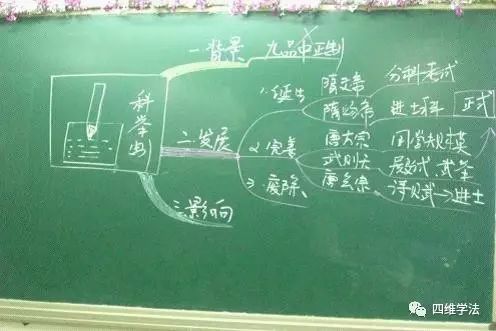 科举
一.背景 九品中正制
1.诞生
隋文帝 分科考试
隋炀帝 进士科 正式
二.发展
2.完善
唐太宗 国学规模
武则天 殿试、武举
唐玄宗 诗赋→进士
3.废除
三.影响
四维学法